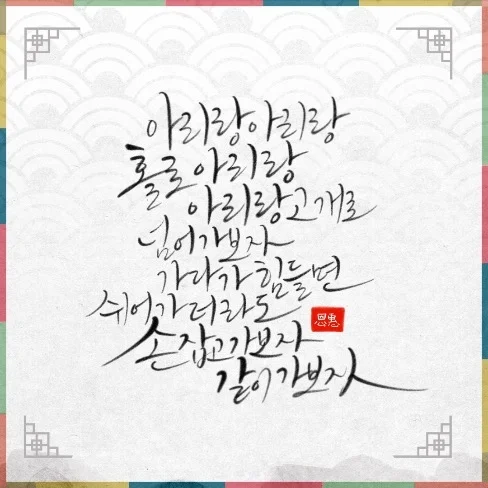 아리랑 아리랑
홀로 아리랑
아리랑 고개로
넘어가보자
가다가 힘들면
쉬어가더라도
손잡고 가보자
같이 가보자
恩惠